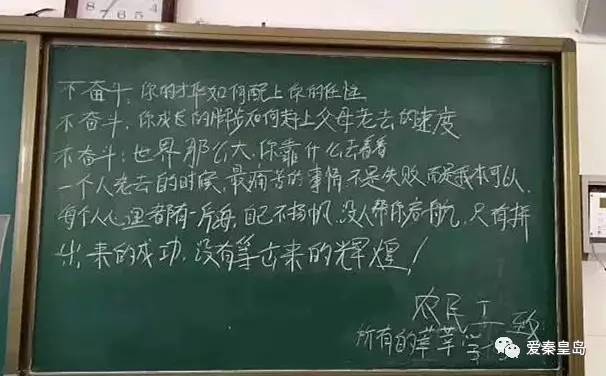 不奋斗,你的才华如何配上你的任性
不奋斗,你成长的脚步如何赶上父母老去的速度
不奋斗:世界那么大,你靠什么去看看
一个人老去的时候,最痛苦的事情,不是失败,而是我本可以,
每个人心里都有一片海,自己不扬帆,没人帮你启航,只有拼
出来的成功,没有等出来的辉煌!
农民工致
所有的莘莘学
爱秦皇岛